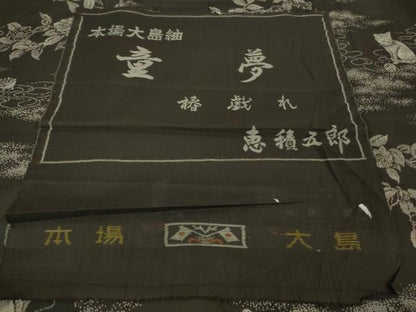 本場大島紬
童夢
椿戯れ
恵積五郎
本場 大島